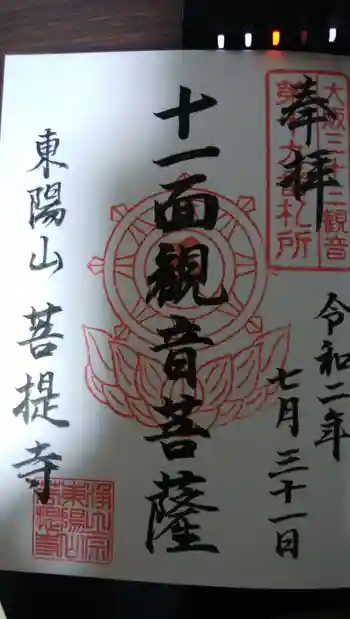 奉拝
大阪三十三観音
第
札所
令和二年
七月三十一日
十一面観音菩薩
東陽山 菩提寺
浄土宗
東陽山
菩提寺